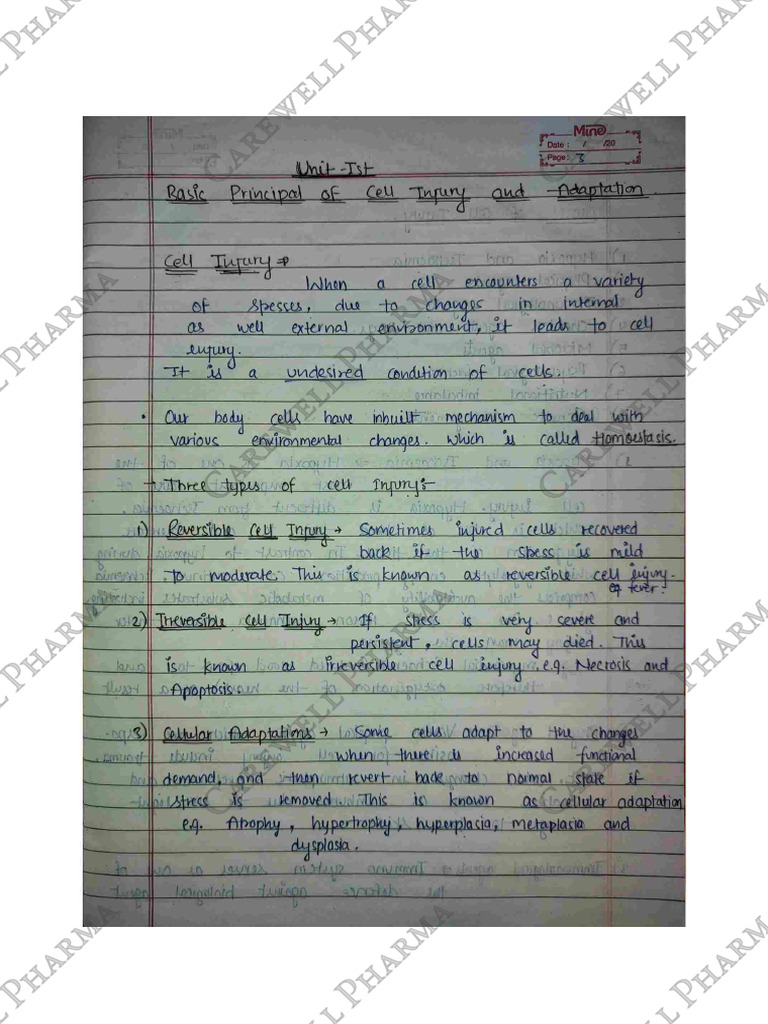 Mine
Date : / /20
Page : 3
Unit - Ist
Basic Principal of Cell Injury and Adaptation
Cell Injury ⇒
When a cell encounters a variety
of spesses, due to changes in internal
as well external environment, it leads to cell
injury.
It is a undesired condition of cells.
• Our body cells have inbuilt mechanism to deal with
various environmental changes. which is called Homoestasis.
→ Three types of cell Injury:-
1) Reversible Cell Injury → Sometimes injured cells recovered
back if the stress is mild
to moderate. This is known as reversible cell injury.
eg fever.
2) Irreversible Cell Injury → If stress is very severe and
persistent, cells may died. This
is known as irreversible cell injury e.g. Necrosis and
Apoptosis.
3) Cellular Adaptations → Some cells adapt to the changes
when there is increased functional
demand, and then revert back to normal state if
stress is removed This is known as cellular adaptation
e.g. Atrophy, hypertrophy, hyperplasia, metaplasia and
dysplasia.
CAREWELL PHARMA